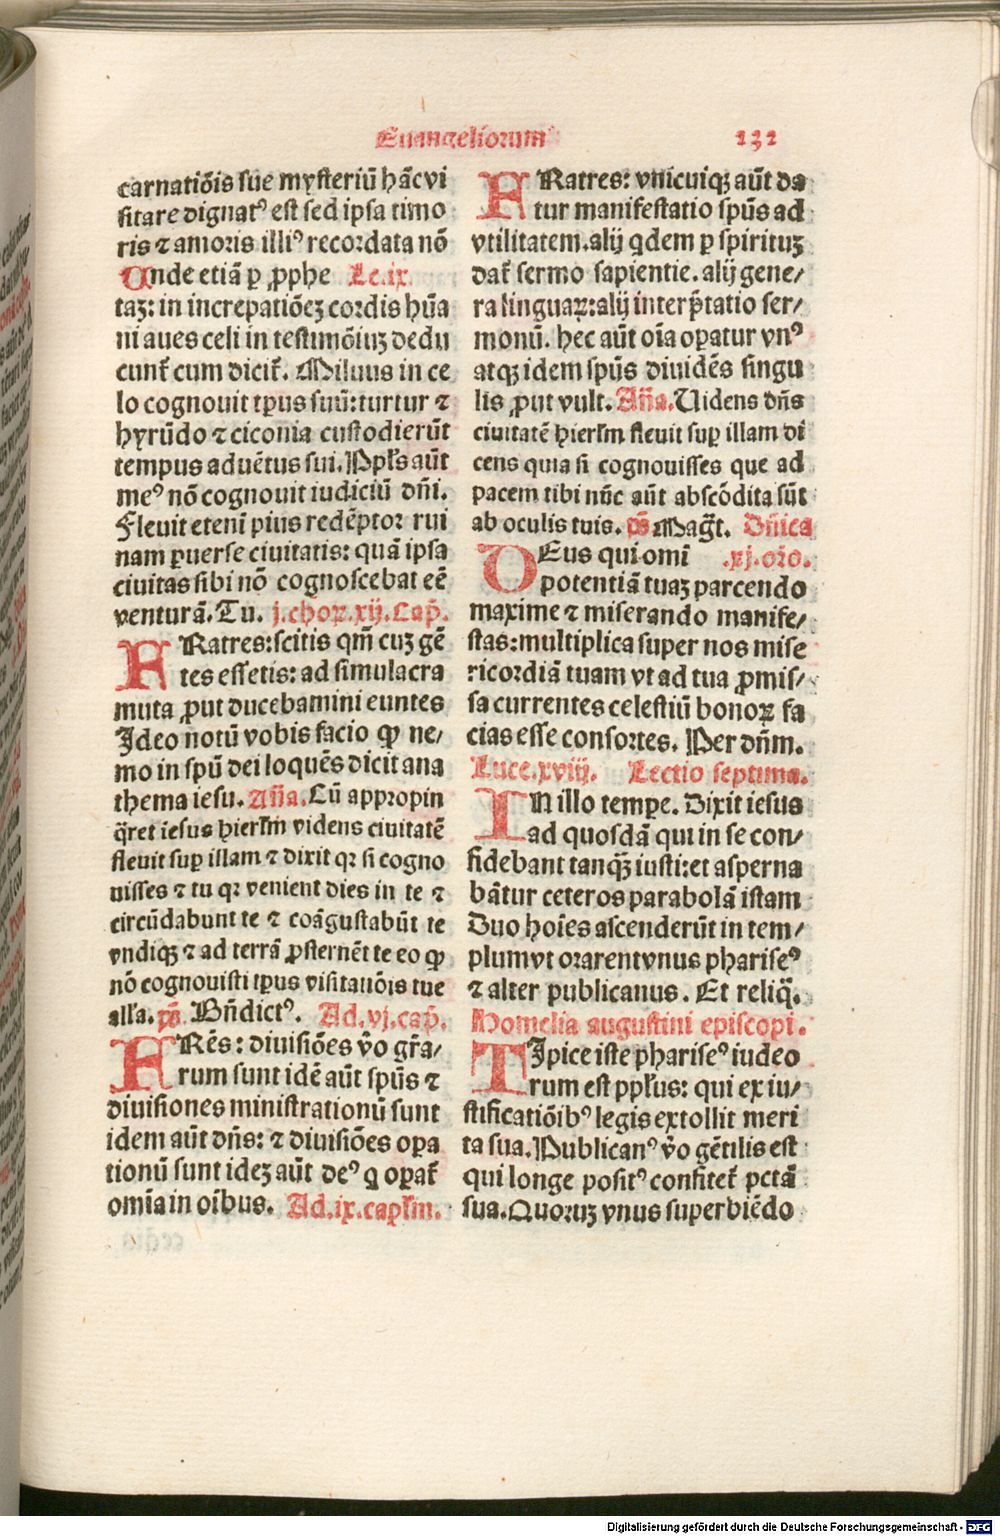 Euangeliorum 232
carnatiōis sue mysteriū hāc vi
sitare dignatꝰ est sed ipsa timo
ris ⁊ amoris illiꝰ recordata nō
Unde etiā ꝑ ꝓphe Le.ix
taʒ: in increpatiōeʒ cordis hūa
ni aues celi in testimōiuʒ dedu
cunt̄ cum dicit̄. Miluus in ce
lo cognouit tp̄us suū: turtur ⁊
hyrūdo ⁊ ciconia custodierūt
tempus aduētus sui. Ppl̄s aūt
meꝰ nō cognouit iudiciū dn̄i.
Fleuit etenī pius redēptor rui
nam ꝑuerse ciuitatis: quā ipsa
ciuitas sibi nō cognoscebat eē
venturā. Tu. j.choꝝ.xij.Cap̄.
FRatres: scitis qm̄ cuʒ gē
tes essetis: ad simulacra
muta ꝓut ducebamini euntes
Ideo notū vobis facio ꝙ ne/
mo in spū dei loquēs dicit ana
thema iesu. An̄a. Cū appropin
q̄ret iesus hierl̄m videns ciuitatē
fleuit suꝑ illam ⁊ dixit qꝛ si cogno
uisses ⁊ tu qꝛ venient dies in te ⁊
circūdabunt te ⁊ coāgustabūt te
vndiqʒ ⁊ ad terrā ꝓsternēt te eo ꝙ
nō cognouisti tp̄us visitatiōis tue
all̄a. ps̄ Bn̄dictꝰ. Ad.vj.cap̄.
FRēs: diuisiōes v̄o gr̄a/
rum sunt idē aūt spūs ⁊
diuisiones ministrationū sunt
idem aūt dn̄s: ⁊ diuisiōes oꝑa
tionū sunt ideʒ aūt deꝰ q oꝑat̄
omīa in oībus. Ad.ix.capl̄m.
FRatres: vnicuiqʒ aūt da
tur manifestatio spūs ad
vtilitatem. alij qdem ꝑ spirituʒ
dat̄ sermo sapientie. alij gene/
ra linguaꝝ: alij interp̄tatio ser/
monū. hec aūt oīa oꝑatur vnꝰ
atqʒ idem spūs diuidēs singu
lis ꝓut vult. An̄a. Uidens dn̄s
ciuitatē hierl̄m fleuit suꝑ illam di
cens quia si cognouisses que ad
pacem tibi nūc aūt abscōdita sūt
ab oculis tuis. ps̄ Mag̅t. Dn̄ica
DEus qui omī .xj.oro.
potentiā tuaʒ parcendo
maxime ⁊ miserando manife/
stas: multiplica super nos mise
ricordiā tuam vt ad tua ꝓmis/
sa currentes celestiū bonoꝝ fa
cias esse consortes. Per dn̄m.
Luce.xviij. Lectio septima.
IN illo tempe. Dixit iesus
ad quosdā qui in se con/
fidebant tanqʒ̄ iusti: et asperna
bātur ceteros parabolā istam
Duo hoīes ascenderūt in tem/
plum vt orarent vnus phariseꝰ
⁊ alter publicanus. Et reliq̄.
Homelia augustini episcopi.
TIpice iste phariseꝰ iudeo
rum est ppl̄us: qui ex iu/
stificatiōibꝰ legis extollit meri
ta sua. Publicanꝰ v̄o gētilis est
qui longe positꝰ confitet̄ pctā
sua. Quoruʒ vnus superbiēdo
Digitalisierung gefördert durch die Deutsche Forschungsgemeinschaft - DFG